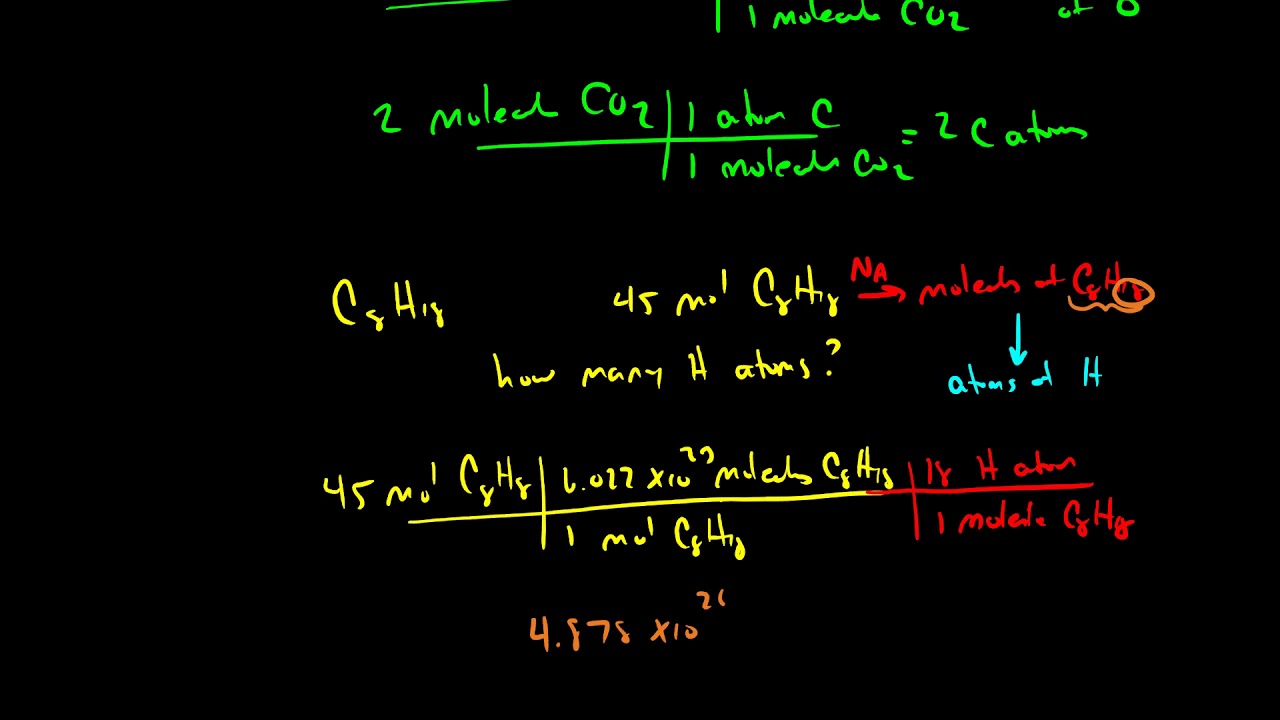 1 molecule CO2 of O
2 molecul CO2 | 1 atom C
1 molecule CO2 = 2 C atoms
C8H18 45 mol C8H18 NA → molecules of C8H18
how many H atoms?
atoms of H
45 mol C8H18 | 6.022 x10^23 molecules C8H18 | 18 H atom
1 mol C8H18 | 1 molecule C8H18
4.878 x10^26